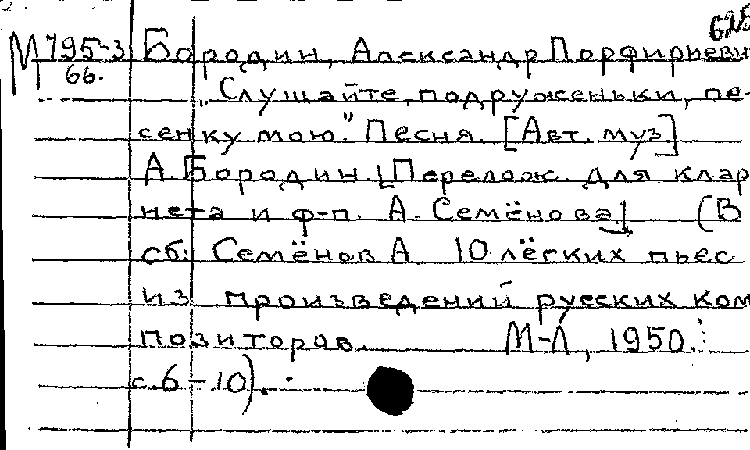 М 795-3 Бородин, Александр Порфирьеви
66.
„Слушайте, подруженьки, пе-
сенку мою." Песня. [Авт. муз]
А. Бородин. [Перелож. для клар
нета и ф-п. А. Семёнова] (В
сб: Семёнов А. 10 лёгких пьес
из произведений русских ком
позиторов. М-Л, 1950.
с. 6-10).